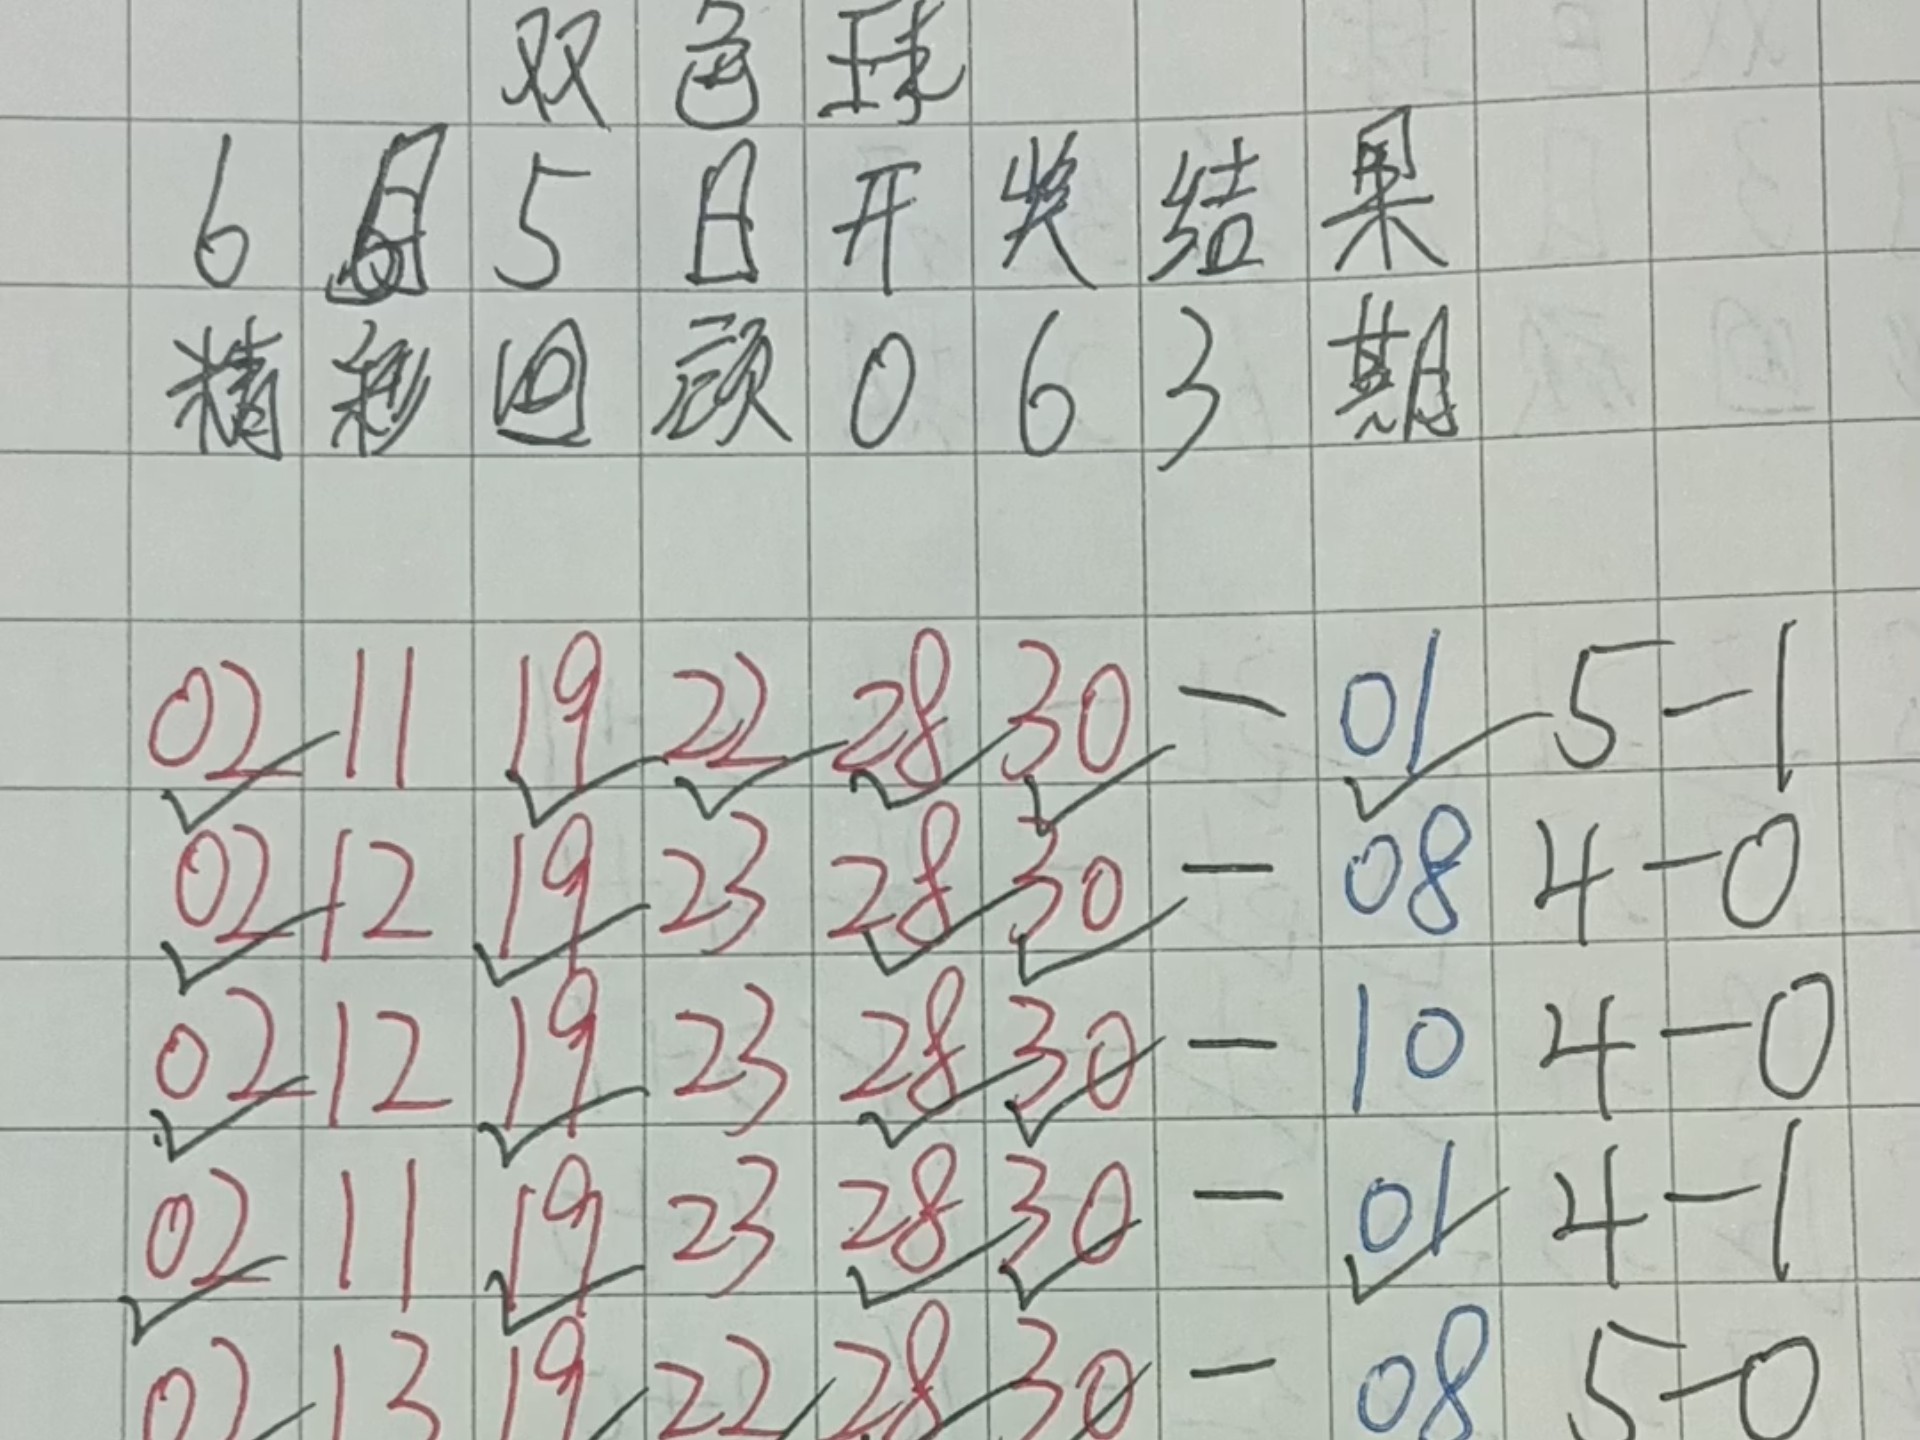 双色球
6月5日开奖结果
精彩回顾063期
02 11 19 22 28 30 — 01 5-1
02 12 19 23 28 30 — 08 4-0
02 12 19 23 28 30 — 10 4-0
02 11 19 23 28 30 — 01 4-1
02 13 19 22 28 30 — 08 5-0